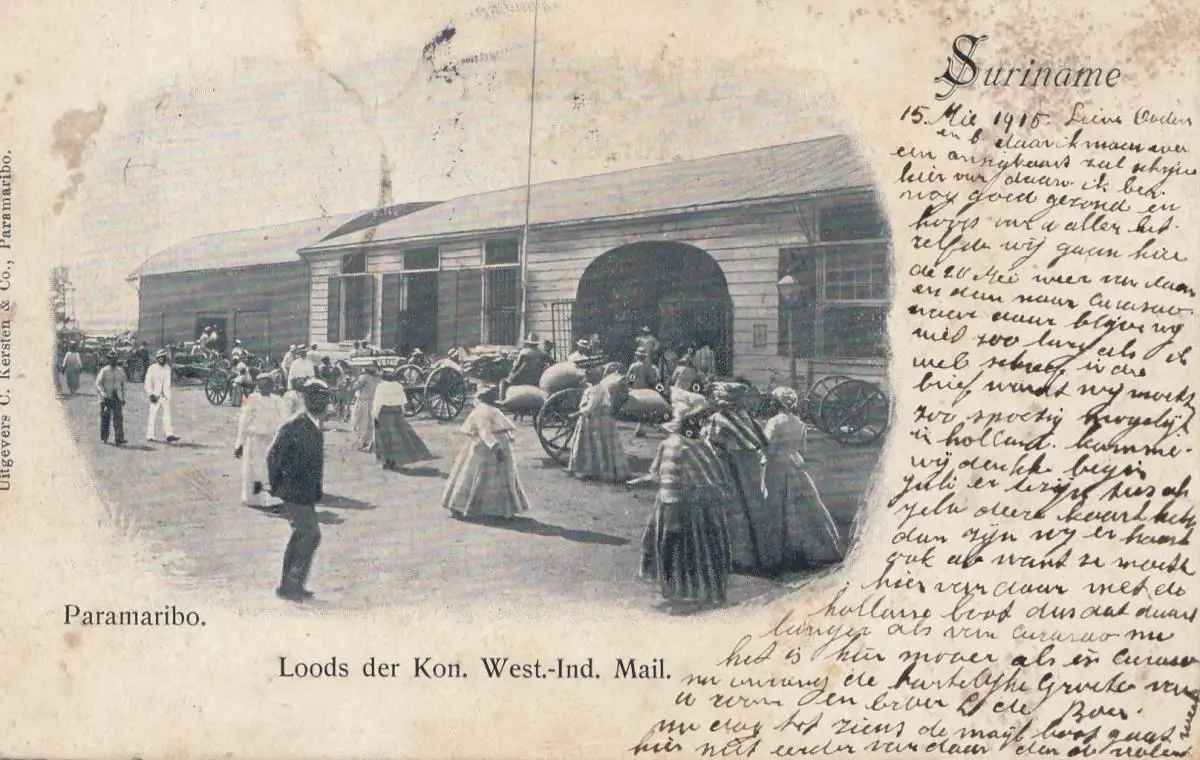 Suriname
15 Mei 1915. Lieve Ouders
en b. daar ik maar weer
een ansigkaart zal schrijve
hier van daan ik ben
nog goed gezond en
hoop van u allen het
zelfde wij gaan hier
de 20 Mei weer van daan
en dan naar Curacao
maar daar blijve wij
niet zoo lang als ik
wel schreef in die
brief want wij moete
zoo spoedig mogelijk
in holland komme
wij denke begin
Juli er te zijn dus als
deze kaart heb
dan zijn wij er haast
ook al want ze moete
hier van daan met de
hollanse boot dus dat duurt
langer als van Curacao nu
het is hier mooer als in Curacao
nu ontvang de hartelijke Groete van
u zoon en broer de Boer
nu dag tot ziens de mail boot gaat
hier niet eerder van daan dan de
Paramaribo.
Loods der Kon. West.-Ind. Mail.
Uitgevers C. Kersten & Co., Paramaribo.